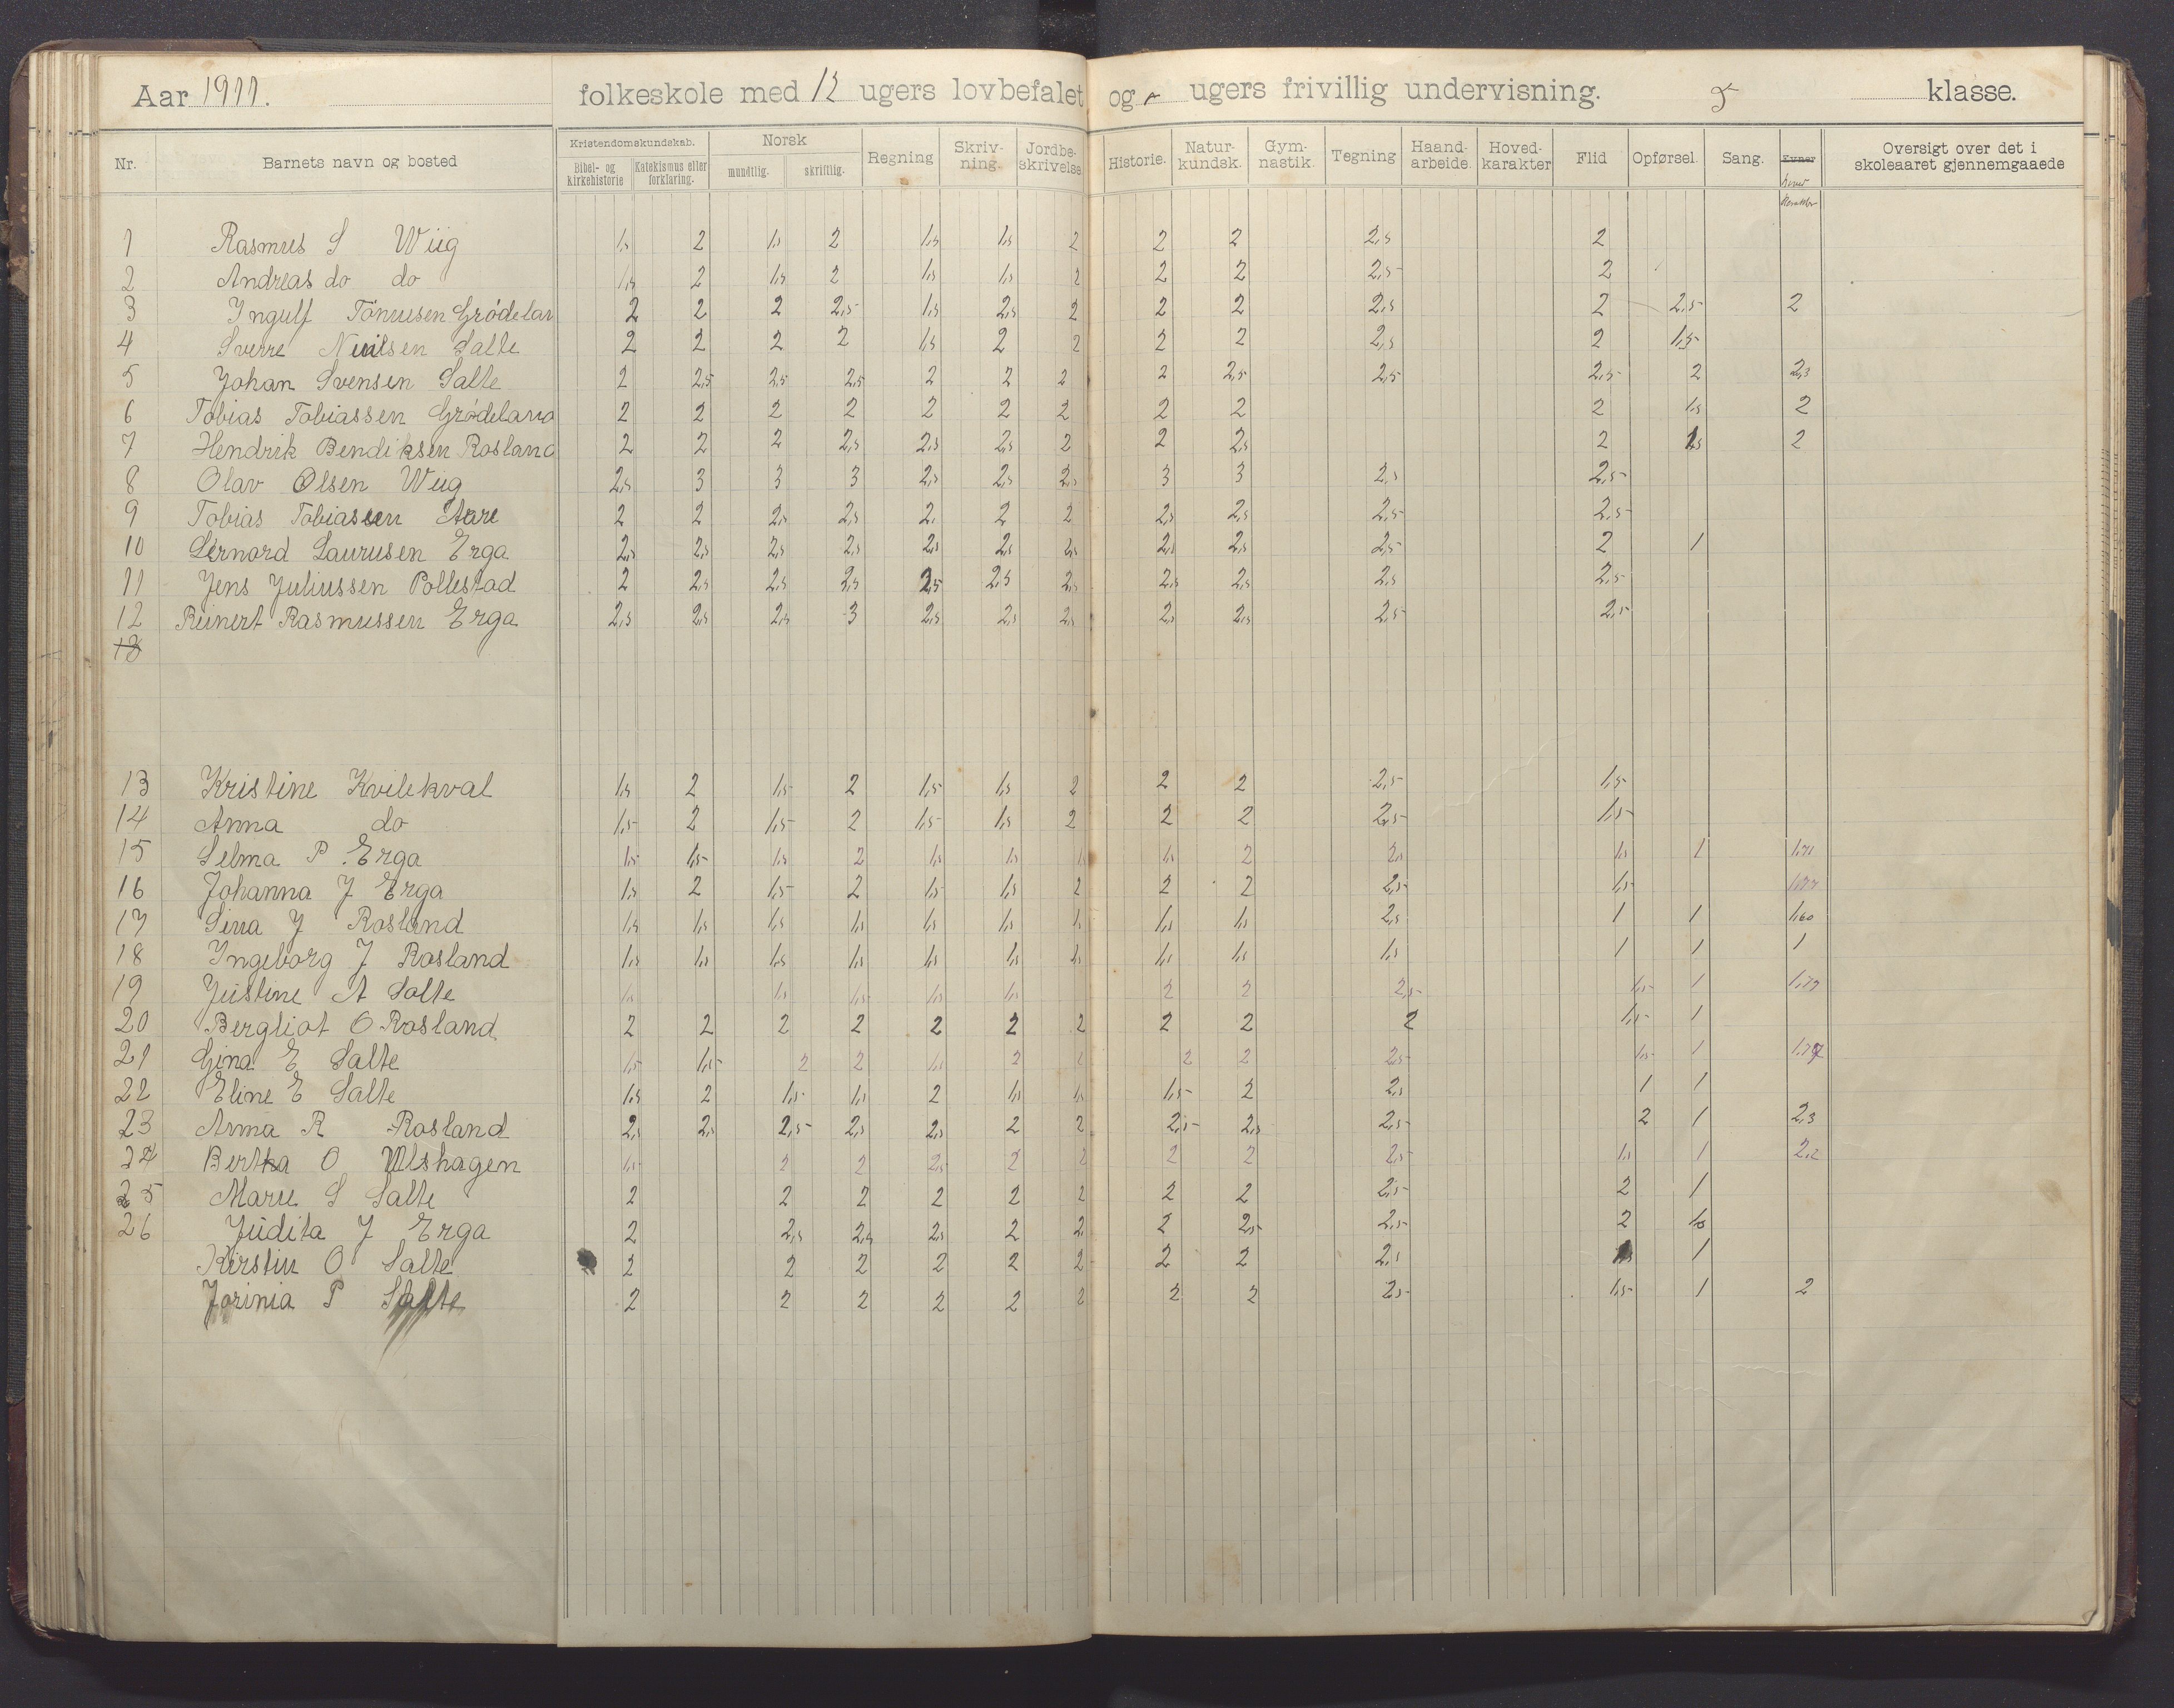 Aar 1911. folkeskole med 12 ugers lovbefalet og - ugers frivillig undervisning. 5 klasse.
Nr. Barnets navn og bosted Kristendomskundskab. Bibel- og kirkehistorie Katekismus eller forklaring. Norsk mundtlig. skriftlig. Regning Skriv-ning. Jordbe-skrivelse Historie. Natur-kundsk. Gym-nastik. Tegning Haand-arbeide. Hoved-karakter Flid Opførsel. Sang. Evner Oversigt over det i skoleaaret gjennemgaaede
1 Rasmus S Wiig 1,5 2 1,5 2 1,5 1,5 2 2 2 2,5 2
2 Andreas do do 1,5 2 1,5 2 1,5 1,5 2 2 2 2,5 2
3 Ingulf Tønnesen Grødelan 2 2 2 2,5 1,5 2,5 2 2 2 2,5 2 2,5 2
4 Sverre Nilsen Salte 2 2 2 2 1,5 2 2 2 2 2,5 2 1,5
5 Johan Svensen Salte 2 2,5 2,5 2,5 2 2 2 2 2,5 2,5 2,5 2 2,3
6 Tobias Tobiassen Grødeland 2 2 2 2 2 2 2 2 2 2 1,5 2
7 Hendrik Bendiksen Rosland 2 2 2 2,5 2,5 2,5 2 2 2,5 2 1,5 2
8 Olav Olsen Wiig 2,5 3 3 3 2,5 2,5 2,5 3 3 2,5 2,5
9 Tobias Tobiassen Aare 2 2 2,5 2,5 2, 2 2 2,5 2,5 2,5 2,5
10 Laurusen Erga 2,5 2,5 2,5 2,5 2,5 2,5 2,5 2,5 2,5 2,5 2 1
11 Jens Juliussen Pollestad 2 2,5 2,5 2,5 2,5 2,5 2,5 2,5 2,5 2,5 2,5
12 Reinert Rasmussen Erga 2,5 2,5 2,5 3 2,5 2,5 2,5 2,5 2,5 2,5 2,5
13
13 Kristine Kvilekval 1,5 2 1,5 2 1,5 1,5 2 2 2 2,5 1,5
14 Anna do 1,5 2 1,5 2 1,5 1,5 2 2 2 2,5 1,5
15 Selma P. Erga 1,5 1,5 1,5 2 1,5 1,5 1,5 2 2,5 1,5 1 1,71
16 Johanna J Erga 1,5 2 1,5 2 1,5 1,5 2 2 2 2,5 1,5 1,77
17 Sina J Rosland 1,5 1,5 1,5 1,5 1,5 1,5 1,5 1,5 1,5 2,5 1 1 1,60
18 Ingeborg J Rosland 1,5 1,5 1,5 1,5 1,5 1,5 1,5 1,5 1,5 1,5 1 1 1
19 Justine A Salte 1,5 1,5 1,5 1,5 1,5 2 2 2,5 1,5 1 1,77
20 Bergliot O Rosland 2 2 2 2 2 2 2 2 2 2 1,5 1
21 Gina E Salte 1,5 1,5 2 2 1,5 2 2 2 2 2,5 1,5 1 1,77
22 Eline E Salte 1,5 2 1,5 1,5 2 1,5 1,5 1,5 2 2,5 1 1
23 Anna R Rosland 2,5 2,5 2,5 2,5 2,5 2 2 2,5 2,5 2,5 2 1 2,3
24 Bertha O Ulshagen 1,5 2 2 2,5 2 2 2 2 2,5 1,5 1 2,2
25 Marie S Salte 2 2 2 2 2 2 2 2 2,5 2 1
26 Judita J Erga 2 2,5 2,5 2,5 2 2, 2 2,5 2,5 2
Kirstin O Salte 2 2 2 2 2 2 2 2 2,5 1
Jorinia P Salte 2 2 2 2 2 2 2 2 2,5 1,5 1 2